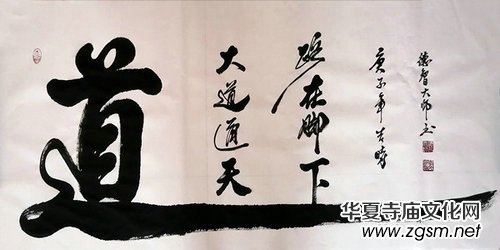 道
大道通天
路在脚下
庚子年吉時
德智大师书
华夏寺庙文化网
www.zgsm.net